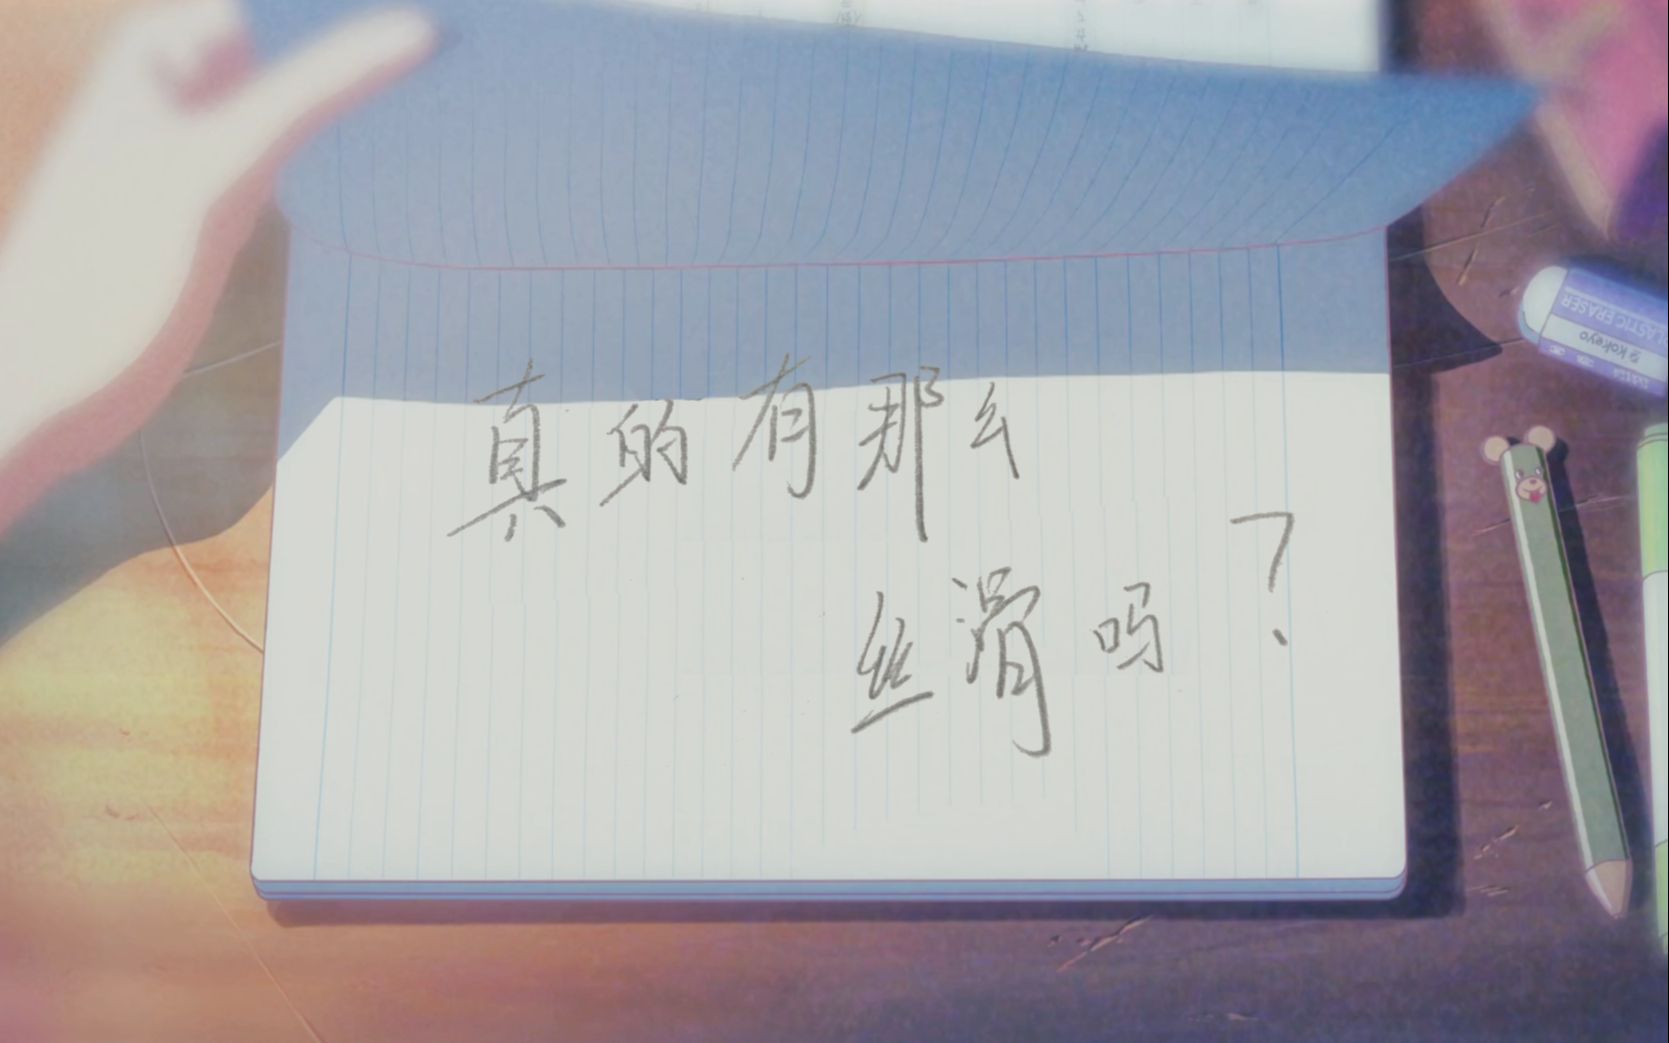 真的有那么
丝滑吗？
PLASTIC ERASER
kokeyo